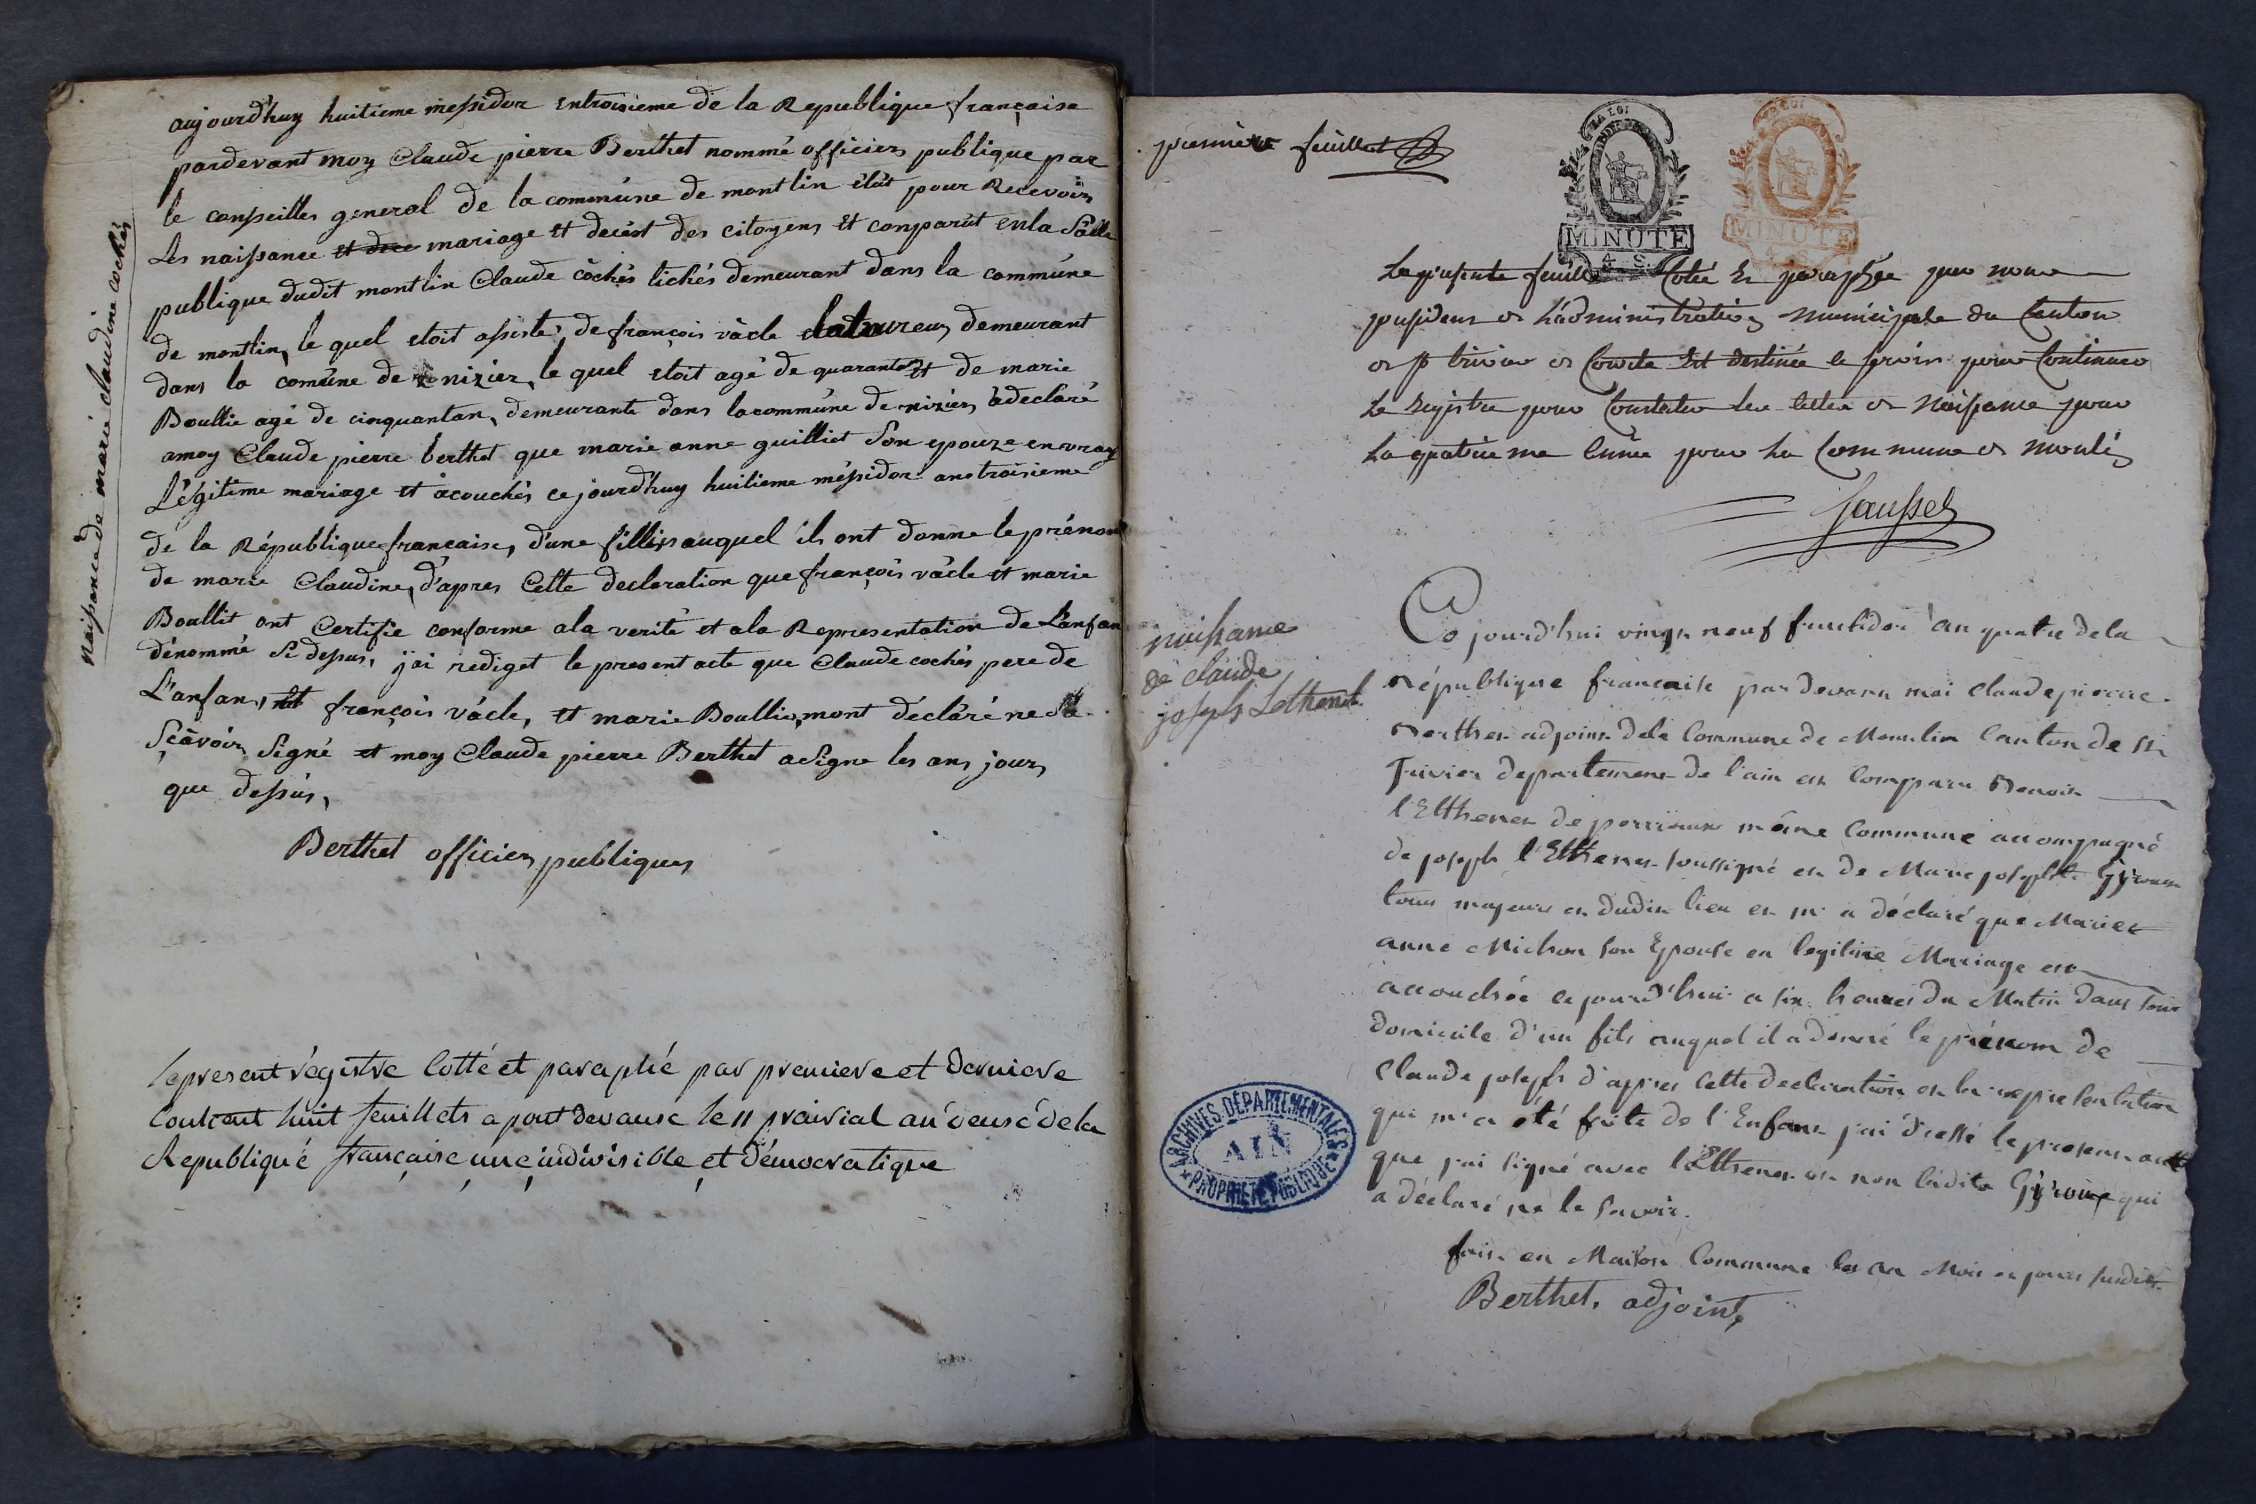 naissance de marie claudine cochés
aujourd'huy huitieme messidor entroisieme de la Republique française
pardevant moy Claude pierre Berthet nommé officiers publique par
le conseilles general de la commúne de montlin élût pour Recevoir
Les naissance et dece mariage et decést des citoyens et comparút en la Salle
publique dudit montlin Claude côchés lichés demeurant dans la commúne
de montlin, le quel etoit assisté, de françois vàcle laboureur, demeurant
dans la comúne de nizier, le quel etoit agé de quarante et de marie
Boullie agé de cinquantan, demeurante dans la commúne de nizier, à declaré
amoy Claude pierre berthet que marie anne guilliet Son epouze en vray
Légitime mariage et àcouchés ce jourd'huy huitieme méssidor ans troisieme
de la République française, d'une filliss auquel ils ont donne le prénom
de marie Claudine, d'apres Cette declaration que françois vàcle et marie
Boullit ont Certifie conforme ala verité et ala Representation de L'anfan
dénommé Si dessus, j'ai rediget le present acte que Claude cochés pere de
L'anfan, et françois vàcle, et marie Boullie, mont déclàré ne
Sçàvoir Signé et moy Claude pierre Berthet a Signe les ans jours
que dessús,
Berthet officiers publiques
le present régistre Cotté et paraphé par premiere et derniere
Contenant huit feuillets a pont devaux le 11 prairial an deusé de la
Republique française une indivisible et démocratique
premiere feuillet
LA LOI
MINUTE
4. S.
LA LOI
MINUTE
La présente feuille Cotée et paraphée par nous
president de l'administration municipale du Canton
de st trivier de Courte Est destinée a servir pour Continuer
Le Registre pour Constater les actes de Naissance pour
La quatrieme année pour La Commune de montlin
Jausset
naissance
de claude
joseph Lethenet
Ce jourd'hui vingt neuf fructidor an quatre de la
République française par devant moi Claude pierre
Berthet adjoint de la Commune de Montlin Canton de St
Trivier departement de l'ain est Comparu Benoit
l'Elthenet de perriaux même Commune accompagné
de joseph l'Elthenet soussigné et de Marie josephte Gÿroux
tous majeurs et dudit lieu et m'a déclaré que Marie
anne Michon son Epouse en legitime Mariage est
accouchée ce jourd'hui a six heures du Matin dans son
domicile d'un fils auquel il a donné le prénom de
Claude joseph d'apres Cette declaration et la representation
qui m'a été faite de l'Enfant j'ai dressé le present acte
que j'ai signé avec l'Elthenet et non ladite Gÿroux qui
a déclaré ne le savoir.
fait en Maison Commune les an Mois et jours susdits
Berthet. adjoint,
ARCHIVES DÉPARTEMENTALES
AIN
PROPRIÉTÉ PUBLIQUE